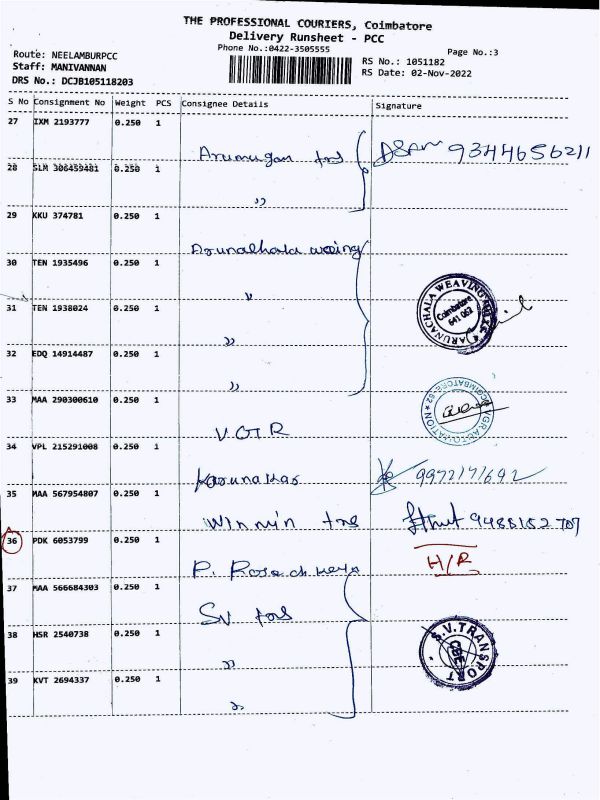 THE PROFESSIONAL COURIERS, Coimbatore
Delivery Runsheet - PCC
Phone No.:0422-3505555
Page No.:3
Route: NEELAMBURPCC
Staff: MANIVANNAN
DRS No.: DCJB105118203
RS No.: 1051182
RS Date: 02-Nov-2022
S No Consignment No Weight PCS Consignee Details Signature
27 IXM 2193777 0.250 1
Arumugan 9344656211
28 SLM 306459481 0.250 1
"
29 KKU 374781 0.250 1
30 TEN 1935496 0.250 1
"
31 TEN 1938024 0.250 1
ARUNACHALA WEAVING
Coimbatore
641 062
32 EDQ 14914487 0.250 1
"
33 MAA 290300610 0.250 1
V.G.R
34 VPL 215291008 0.250 1
35 MAA 567954807 0.250 1
Winwin
36 PDK 6053799 0.250 1
H/R
37 MAA 566684303 0.250 1
SV
38 HSR 2540738 0.250 1
"
S.V.TRANSPORT
CBE
39 KVT 2694337 0.250 1
"